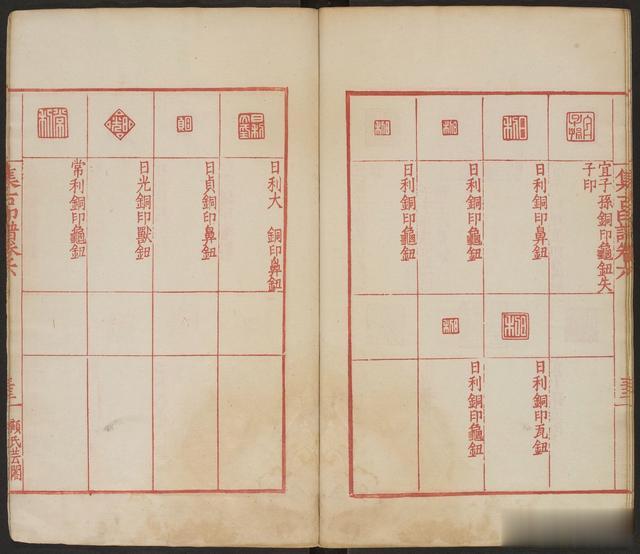 集古印譜卷六
宜子孫銅印龜鈕失
子印
日利銅印鼻鈕
日利銅印龜鈕
日利銅印龜鈕
日利銅印瓦鈕
日利銅印龜鈕
日利大 銅印鼻鈕
日貞銅印鼻鈕
日光銅印獸鈕
常利銅印龜鈕
集古印譜卷六
顧氏芸閣